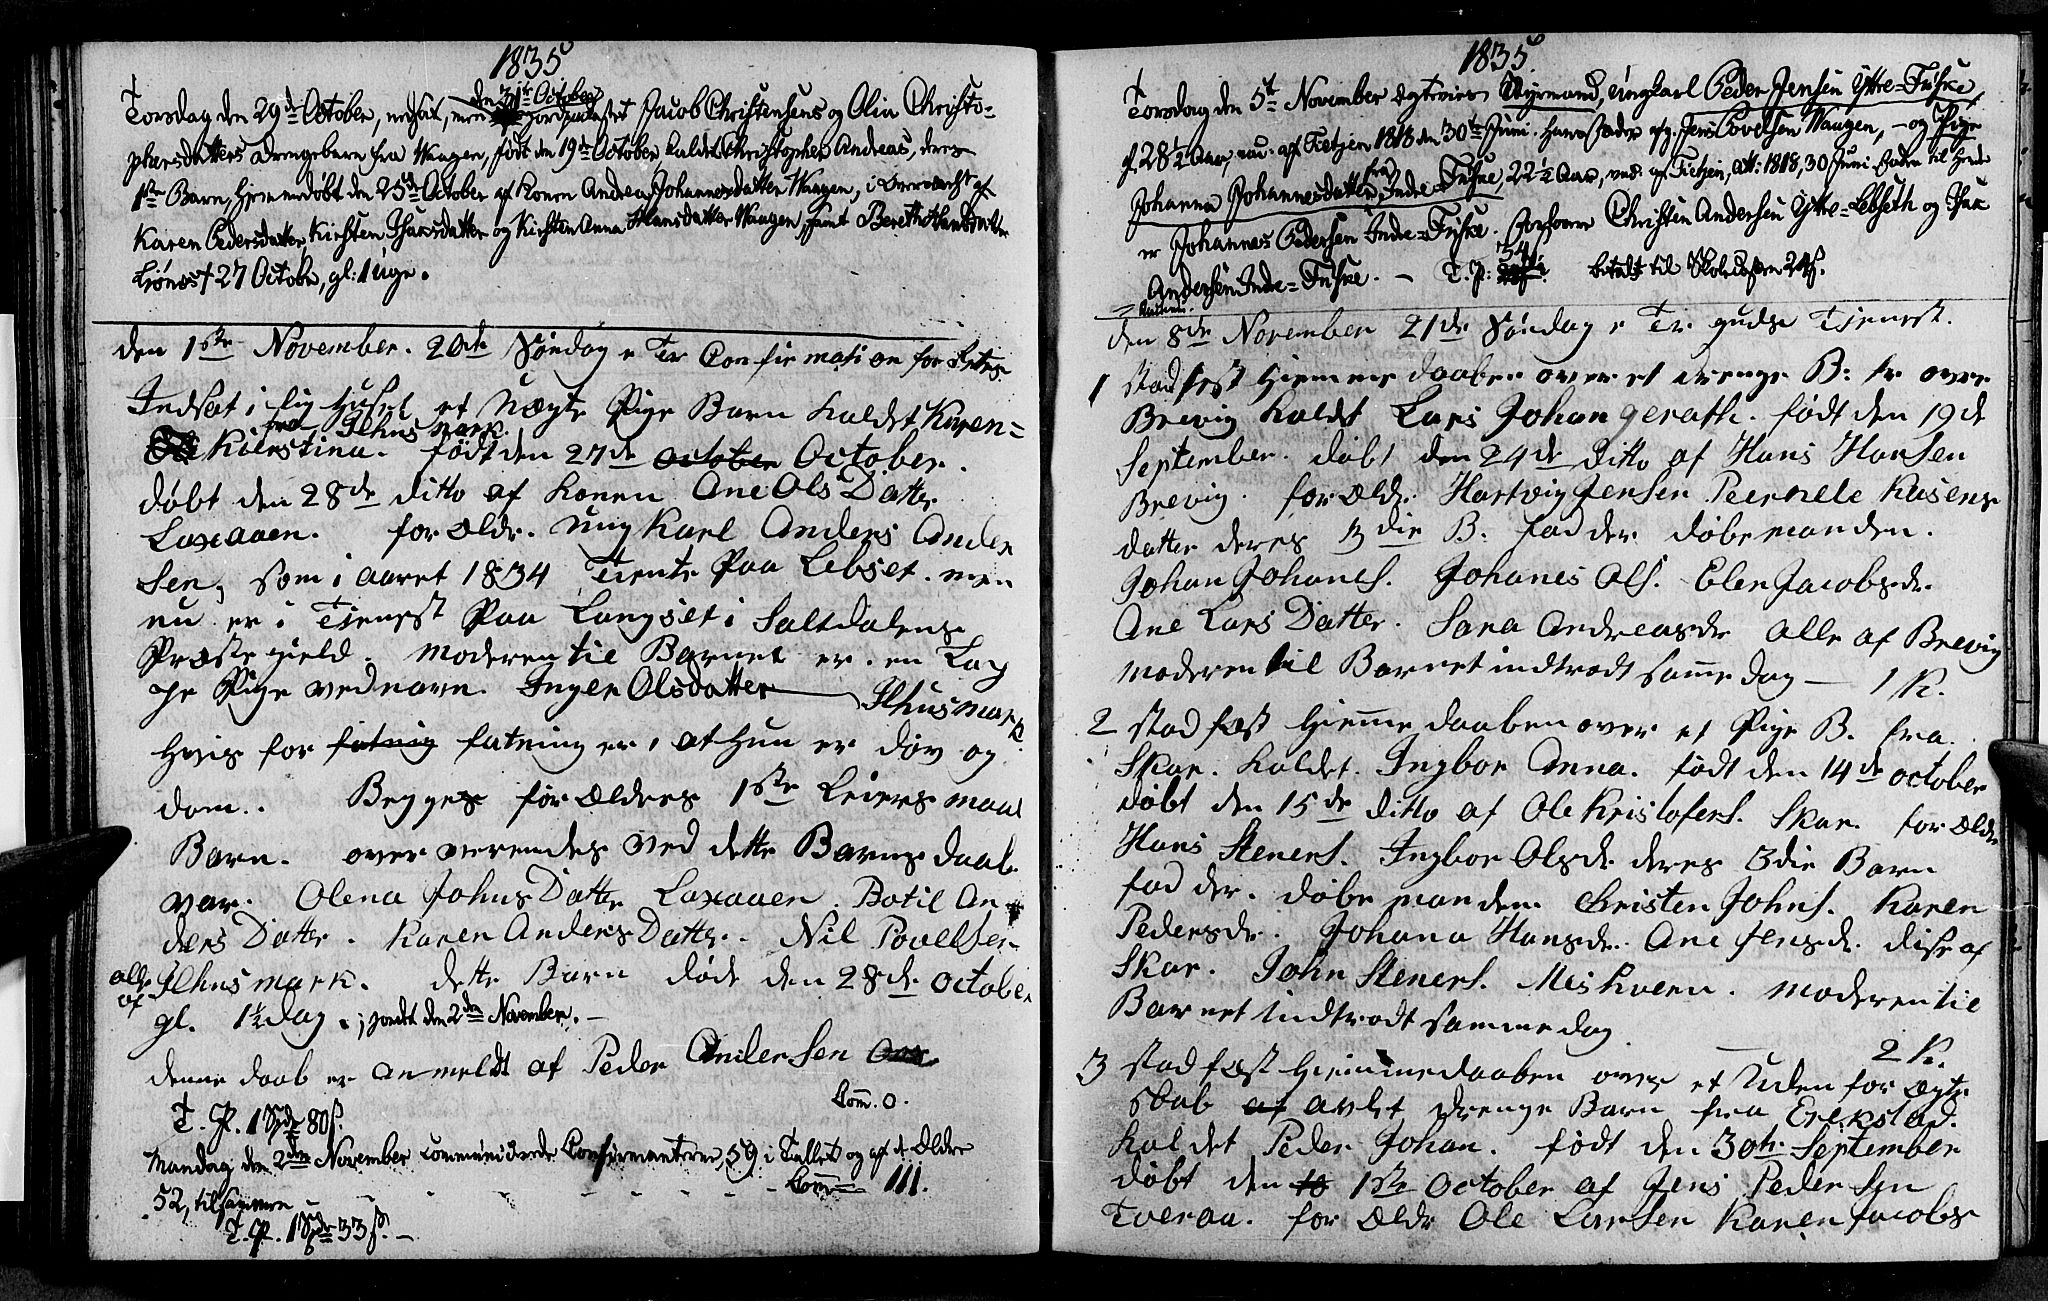 1835
den 31te October
Torsdag den 29de October, nedsat, men jordfæstet Jacob Christensens og Olia Christo-
phersdatters Drengebarn fra Waagen, født den 19de October kaldet Christopher Andreas, deres
1ste Barn, hjemmedøbt den 25de October af Konen Andrea Johannesdatter Waagen, i Overvær af
Karen Pedersdatter, Kirsten Isaksdatter og Kirsten Anna Hansdatter Waagen, samt Bereth Hansdatter
† 27 Octobr, gl: 1 uge.
den 1ste November. 20de Søndag e Tr Confirmation forrettes.
Indsat i et Uægte Pige Barn kaldet Karen=
fra Ilhusmark.
Kierstina. født den 27de October October.
døbt den 28de ditto af konen Ane Ols Datter
Laxaaen. for Ældr. Ung Karl Anders Ander
Sen, som i aaret 1834 Tiente Paa Lebset. men
nu er i Tienest Paa Langset i Saltdalens
Præste gield. moderen til Barnet er en Læg
ge Pige ved navn. Inger Olsdatter Ilhusmark.
Hvis for fatnig fatning er, at Hun er døv og
dom. Begges for Ældres 1ste Leiersmaal
Barn. over værendes ved dette Barns daab
var. Olena Johns Datter Laxaaen. Botil An-
ders Datter. Karen Anders Datter. Nil Povelsen
alle af Ilhusmark. dette Barn døde den 28de October
gl. 1½ dag. jordet den 2den November.
denne daab er anmeldt af Peder Andersen
Com. 0.
T. P. 1 Spd 80 s.
Mandag den 2den November communicerede Confirmanterne, 59 i Tallet og af de Ældre
52, tilsammen - - - - - - Com 111.
T. P. 1 Spd 33 s.
1835
Torsdag den 5te November Ægtevies ungkarl Peder Jensen Ytre=Fuske,
28½ Aar, vac: af Tietzen 1818 den 30te Juni. Hans Fader afg. Jens Povelsen Waagen, - og Pige
Johanna Johannesdatter fra Indre=Fuske, 22½ Aar, vac af Tietzen, att: 1818, 30 Juni. Faderen til hende
er Johannes Pedersen Indre=Fuske. Forlovere Christen Andersen Ytre=Lebseth og Isak
Andersen Indre=Fuske. - T. P: 54 s. betalt til Skolecassen 24 s.
den 8de November 21de Søndag e Tr. guds Tienest.
1 stad fest Hiemme daaben over et drenge B: fr over
Brevig kaldt Lars Johan Gerath. født den 19de
September. døbt den 24de ditto af Hans Hansen
Brevig. for Ældr. Hartvig Jensen Peernele Kasens
datter deres 3die B. fadder døbemanden.
Johan Johanes. Johanes Ols. Elen Jacobsdr.
Ane Lars Datter. Sara Andreasdr alle af Brevig
moderen til Barnet indtrædt samme dag - 1 K.
2 stad fæst Hiemme daaben over et Pige B. fra
Skar. kaldet. Ingbor Anna. født den 14de October
døbt den 15de ditto af Ole Kristofers. Skar. for Ældr
Hans Steners. Ingbor Olsdr. deres 3die Barn
fadder. døbe manden. Christen Johns. Karen
Pedersdr. Johana Hansdr. Ane Jensdr. disse af
Skar. John Steners. Miskvern. moderen til
Barnet indtrædt samme dag
2 K.
3 stadfæst Hiemmedaaben over et uden for Ægte
skab af avlet drenge Barn fra Erikstad.
kaldet Peder Johan. født den 30te September
døbt den 1ste October af Jens Pedersen
Tveraa. for Ældr Ole Larsen Karen Jacobs